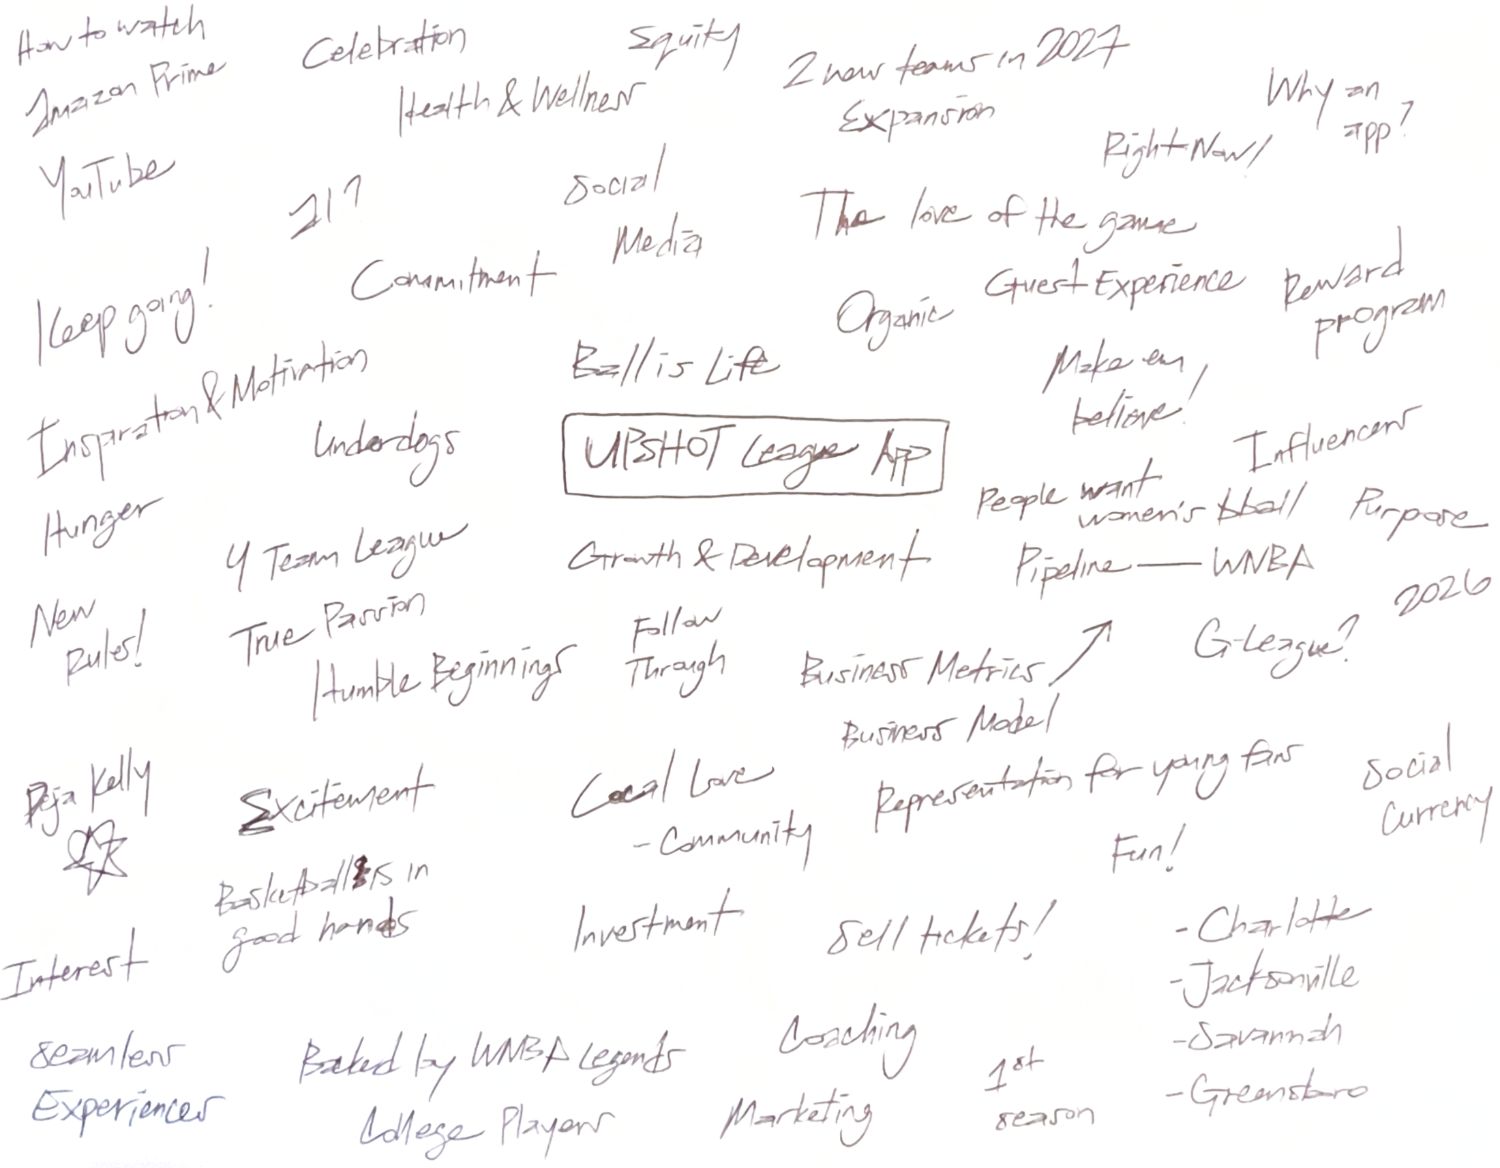 How to watch
Amazon Prime
YouTube
Celebration
Health & Wellness
Equity
2 new teams in 2027
Expansion
Why an
app?
Right Now!
Social
Media
The love of the game
Commitment
Keep going!
Organic
Guest Experience
Reward
program
Inspiration & Motivation
Ball is Life
Make em
believe!
Underdogs
UPSHOT League App
Influencers
Hunger
People want
women's bball
Purpose
4 Team League
Growth & Development
Pipeline — WNBA
2026
New
Rules!
True Passion
Humble Beginnings
Follow
Through
G-League?
Business Metrics
Business Model
Deja Kelly
Excitement
Local Love
- Community
Representation for young fans
Social
Currency
Fun!
Basketball is in
good hands
Investment
Sell tickets!
- Charlotte
- Jacksonville
- Savannah
- Greensboro
Interest
Seamless
Experiences
Backed by WNBA Legends
College Players
Coaching
Marketing
1st
season